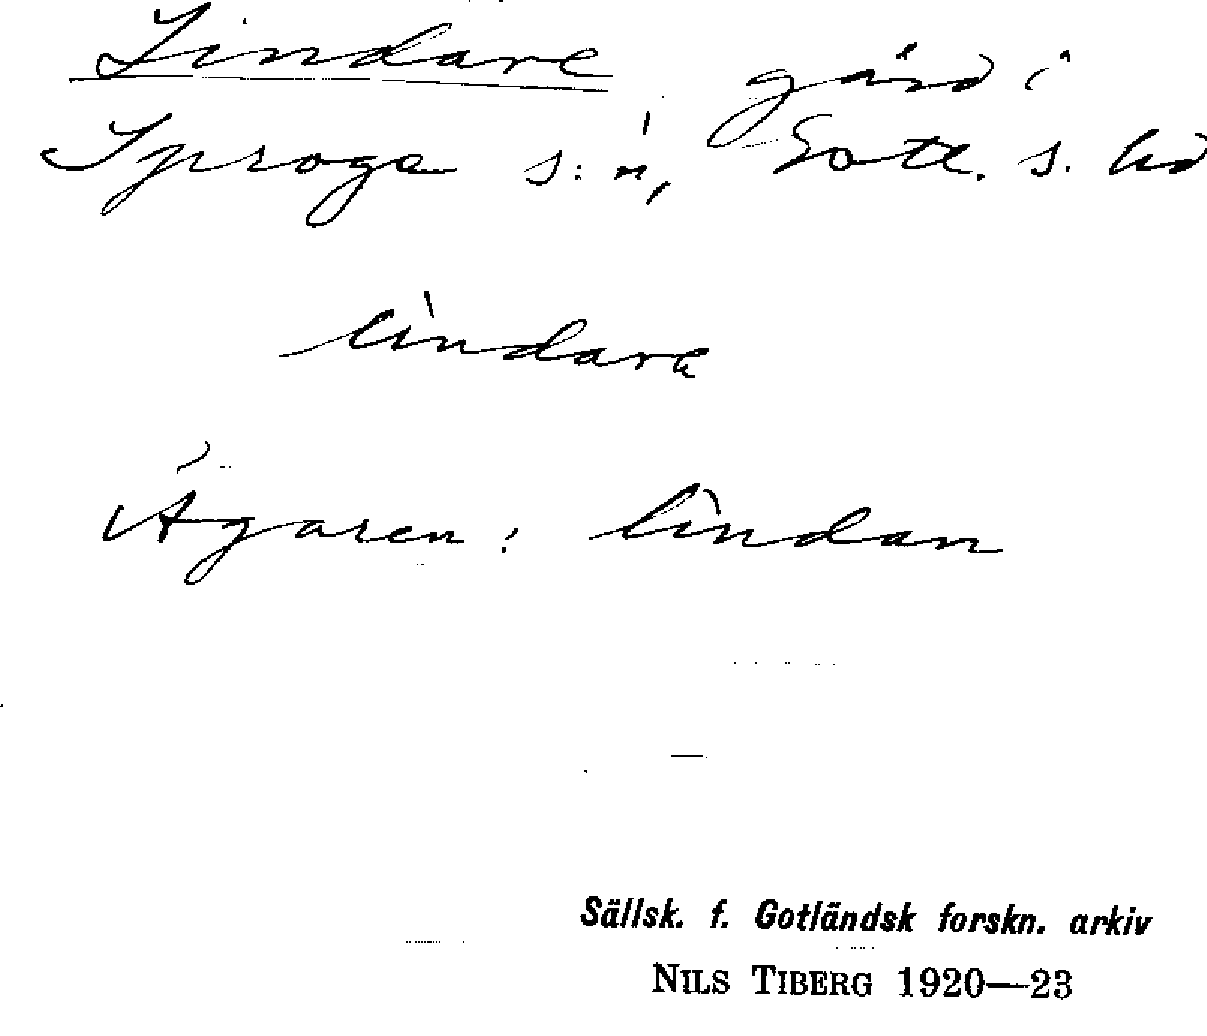 Lindare, gård i
Sproge s:n, Gotl. s. hd
lìndara
Ägaren: lìndan
Sällsk. f. Gotländsk forskn. arkiv
NILS TIBERG 1920—23